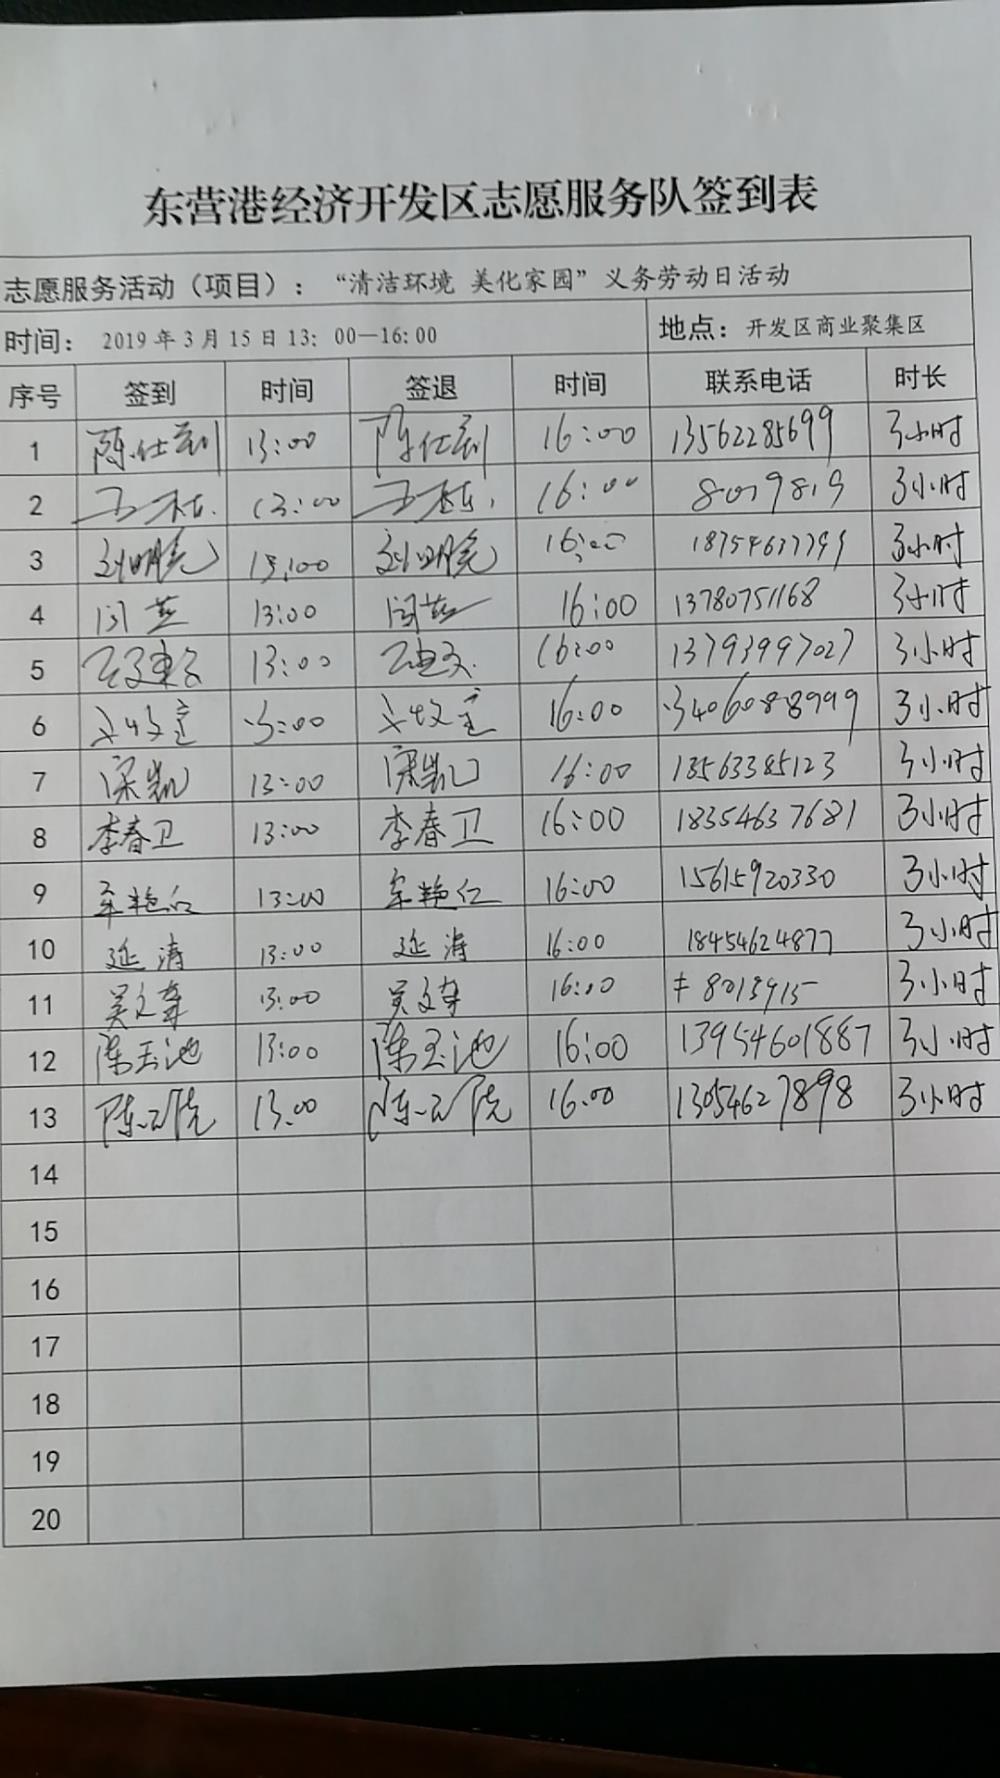 东营港经济开发区志愿服务队签到表
志愿服务活动（项目）：“清洁环境 美化家园”义务劳动日活动
时间：2019年3月15日13：00—16:00 地点：开发区商业聚集区
序号 签到 时间 签退 时间 联系电话 时长
1 13:00 16:00 13562285699 3小时
2 13:00 16:00 8019819 3小时
3 刘明亮 刘明亮 16:00 3小时
4 闫燕 13:00 闫燕 16:00 13780751168 3小时
5 13:00 16:00 13793997027 3小时
6 16:00 3小时
7 宋凯 13:00 宋凯 16:00 18563385123 3小时
8 李春卫 13:00 李春卫 16:00 18354637681 3小时
9 13:00 16:00 15615920330 3小时
10 延涛 13:00 延涛 16:00 18454624877 3小时
11 13:00 16:00 8013915 3小时
12 陈玉池 13:00 陈玉池 16:00 13954601887 3小时
13 13:00 16:00 13054627898 3小时
14
15
16
17
18
19
20